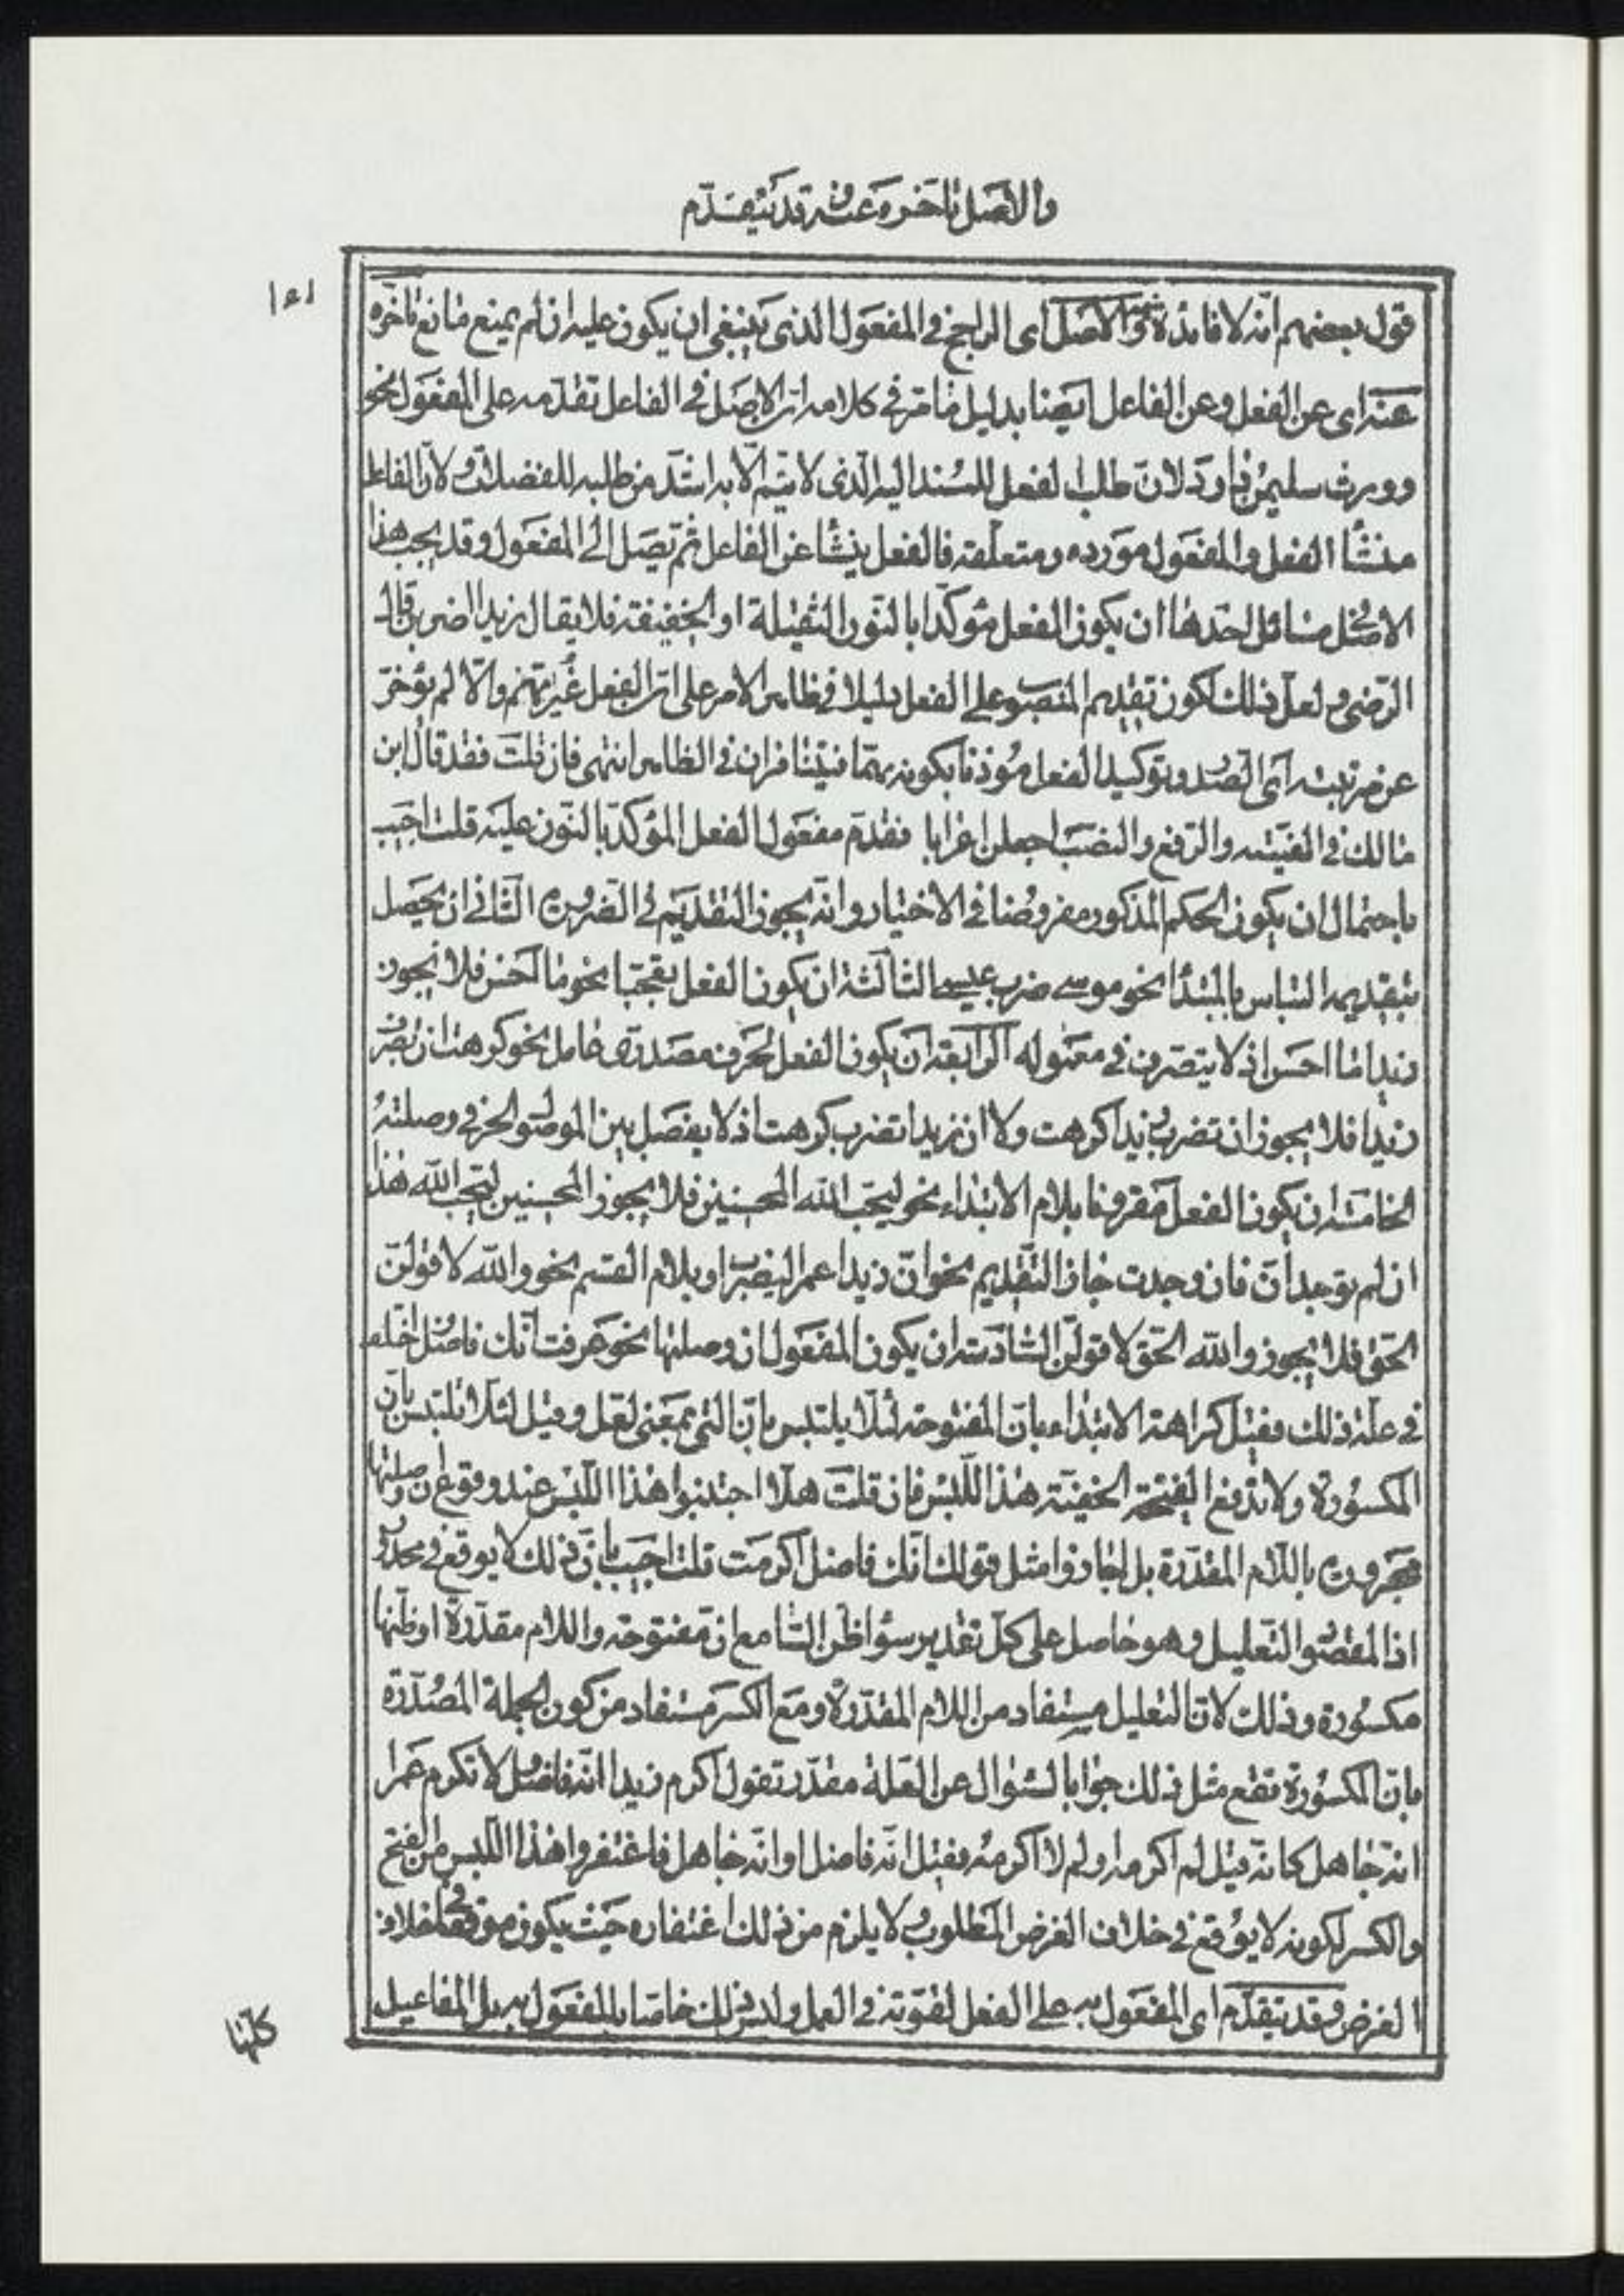 والاصل تاخره عنه وقد يتقدّم
١٤١
قول بعضهم انه لا فائدة فيه والاصل اى الراجح فى المفعول الذى ينبغى ان يكون عليه ان لم يمنع مانع تاخره
عنه اى عن الفعل وعن الفاعل ايضا بدليل ما مرّ فى كلامه انّ الاصل فى الفاعل تقدّمه على المفعول نحو
وورث سليمن داود لانّ طلب الفعل للمسند اليه الّذى لا يتمّ الّا به اشدّ من طلبه للفضلات ولانّ الفاعل
منشأ الفعل والمفعول مورده ومتعلّقه فالفعل ينشأ عن الفاعل ثم يصل الى المفعول وقد يجب هذا
الاصل فى مسائل احدها ان يكون الفعل مؤكّدا بالنّون الثّقيلة او الخفيفة فلا يقال زيدا اضربن قال
الرّضى ولعلّ ذلك لكون تقديم المنصوب على الفعل دليلا فى ظاهر الامر على انّ الفعل غير مهتم والّا لم يؤخر
عن مرتبته اى الصدر وتوكيد الفعل مؤذنا بكونه مهمّا فيتنافران فى الظاهر انتهى فان قلت فقد قال ابن
مالك فى الفيّته والرّفع والنصب اجعلن اعرابا فقدّم مفعول الفعل المؤكّد بالنّون عليه قلت اجيب
باحتمال ان يكون الحكم المذكور مفروضا فى الاختيار وانّه يجوز التقديم فى الضرورة الثانى ان يحصل
بتقديمه التباس بالمبتدأ نحو موسى ضرب عيسى الثالثة ان يكون الفعل تعجّبا نحو ما احسن فلا يجوز
زيدا ما احسن اذ لا يتصّرف فى معموله الرّابعة ان يكون الفعل لحرف مصدرىّ عامل نحو كرهت ان تضرب
زيدا فلا يجوز ان تضرب زيدا كرهت ولا ان زيدا تضرب كرهت اذ لا يفصل بين الموصول الحرفى وصلته
الخامسة ان يكون الفعل مقرونا بلام الابتداء نحو ليحبّ الله المحسنين فلا يجوز المحسنين ليحبّ الله هذا
ان لم توجد انّ فان وجدت جاز التّقديم نحو انّ زيدا عمرا ليضرب او بلام القسم نحو والله لاقولنّ
الحقّ فلا يجوز والله الحقّ لاقولنّ السّادسة ان يكون المفعول انّ وصلتها نحو عرفت انّك فاضل اختلف
فى علّة ذلك فقيل كراهة الابتداء بانّ المفتوحة لئلّا يلتبس بانّ التى بمعنى لعلّ وقيل لئلّا تلتبس بانّ
المكسورة ولا تدفع الفتحة الخفيّة هذا اللّبس فان قلت هلّا اجتنبوا هذا اللّبس عند وقوع انّ وصلتها
مجرورة باللّام المقدّرة بل اجازوا مثل قولك انّك فاضل اكرمت قلت اجيب بانّ ذلك لا يوقع فى محذور
اذ المقصود التّعليل وهو حاصل على كل تقدير سواء ظنّ السّامع انّ مفتوحة واللام مقدّرة او ظنّها
مكسورة وذلك لانّ التعليل مستفاد من اللام المقدّرة ومع الكسر مستفاد من كون الجملة المصدّرة
بانّ المكسورة تقع مثل ذلك جوابا لسؤال عن العلّة مقدّر تقول اكرم زيدا انّه فاضل ولا تكرم عمرا
انّه جاهل كانّه قيل لم اكرمه ولم لا اكرمه فقيل انّه فاضل او انّه جاهل فاغتفروا هذا اللّبس من الفتح
والكسر لكونه لا يوقع فى خلاف الغرض المطلوب ولا يلزم من ذلك اغتفاره حيث يكون موقعا فى خلاف
الغرض وقد يتقدّم اى المفعول به على الفعل لقوّته فى العمل وليس ذلك خاصّا بالمفعول به بل المفاعيل
كلّها